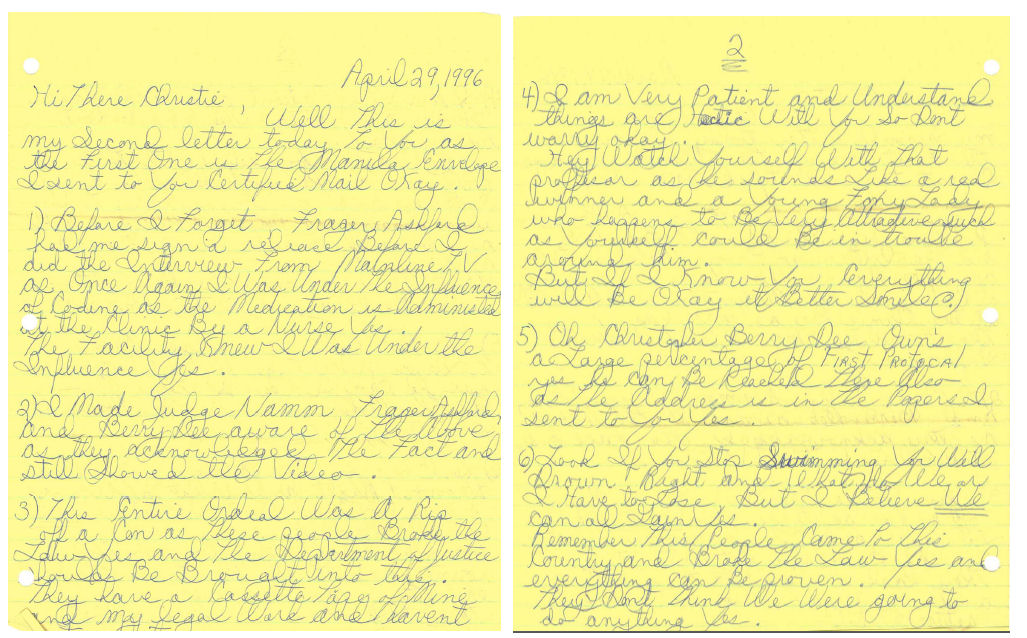 April 29, 1996
Hi There Christie,
Well This is
my Second letter today To You as
the First One is The Manula Envelope
I sent to You Certified Mail Okay.
1) Before I Forget Frager, Ashford
had me sign a releace Before I
did the Interview From Mainline TV
as Once Again I Was Under the Influence
of Codine as the Medication is Administed
at the Clinic By a Nurse Yes.
The Facility Knew I Was Under the
Influence Yes.
2) I Made Judge Namm Frager, Ashford
and Berry Dee aware of The above
as they acknowledged The Fact and
still Showed the Video.
3) This Entire Ordeal Was A Rip
off a Con as These people Broke the
Law Yes and The Department of Justice
Should Be Brought into this.
They have a Cassette Tape of Mine
and my legal Work and havent
2
4) I am Very Patient and Understand
things are Hectic With You so Dont
warry okay.
Hey Watch Yourself With That
proffesar as he sounds Like a real
winner and a Young Foxy Lady
who happens to Be Very attractive such
as Yourself could Be in trouble
around him.
But If I Know You everything
will Be Okay it Better Smile
5) Oh Christopher Berry Dee Own's
a Large percentage of FIRST PROTOCAL
yes he can Be Reached There Also
as The address is in the Papers I
sent to You Yes.
6) Look If You Stop Swimming You Will
Drown Right and What do We or
I Have to Lose, But I Believe We
can all Gain Yes.
Remember This People Came To This
Country and Broke The Law Yes and
everything can Be proven.
They Dont Think We Were going to
do anything Yes.